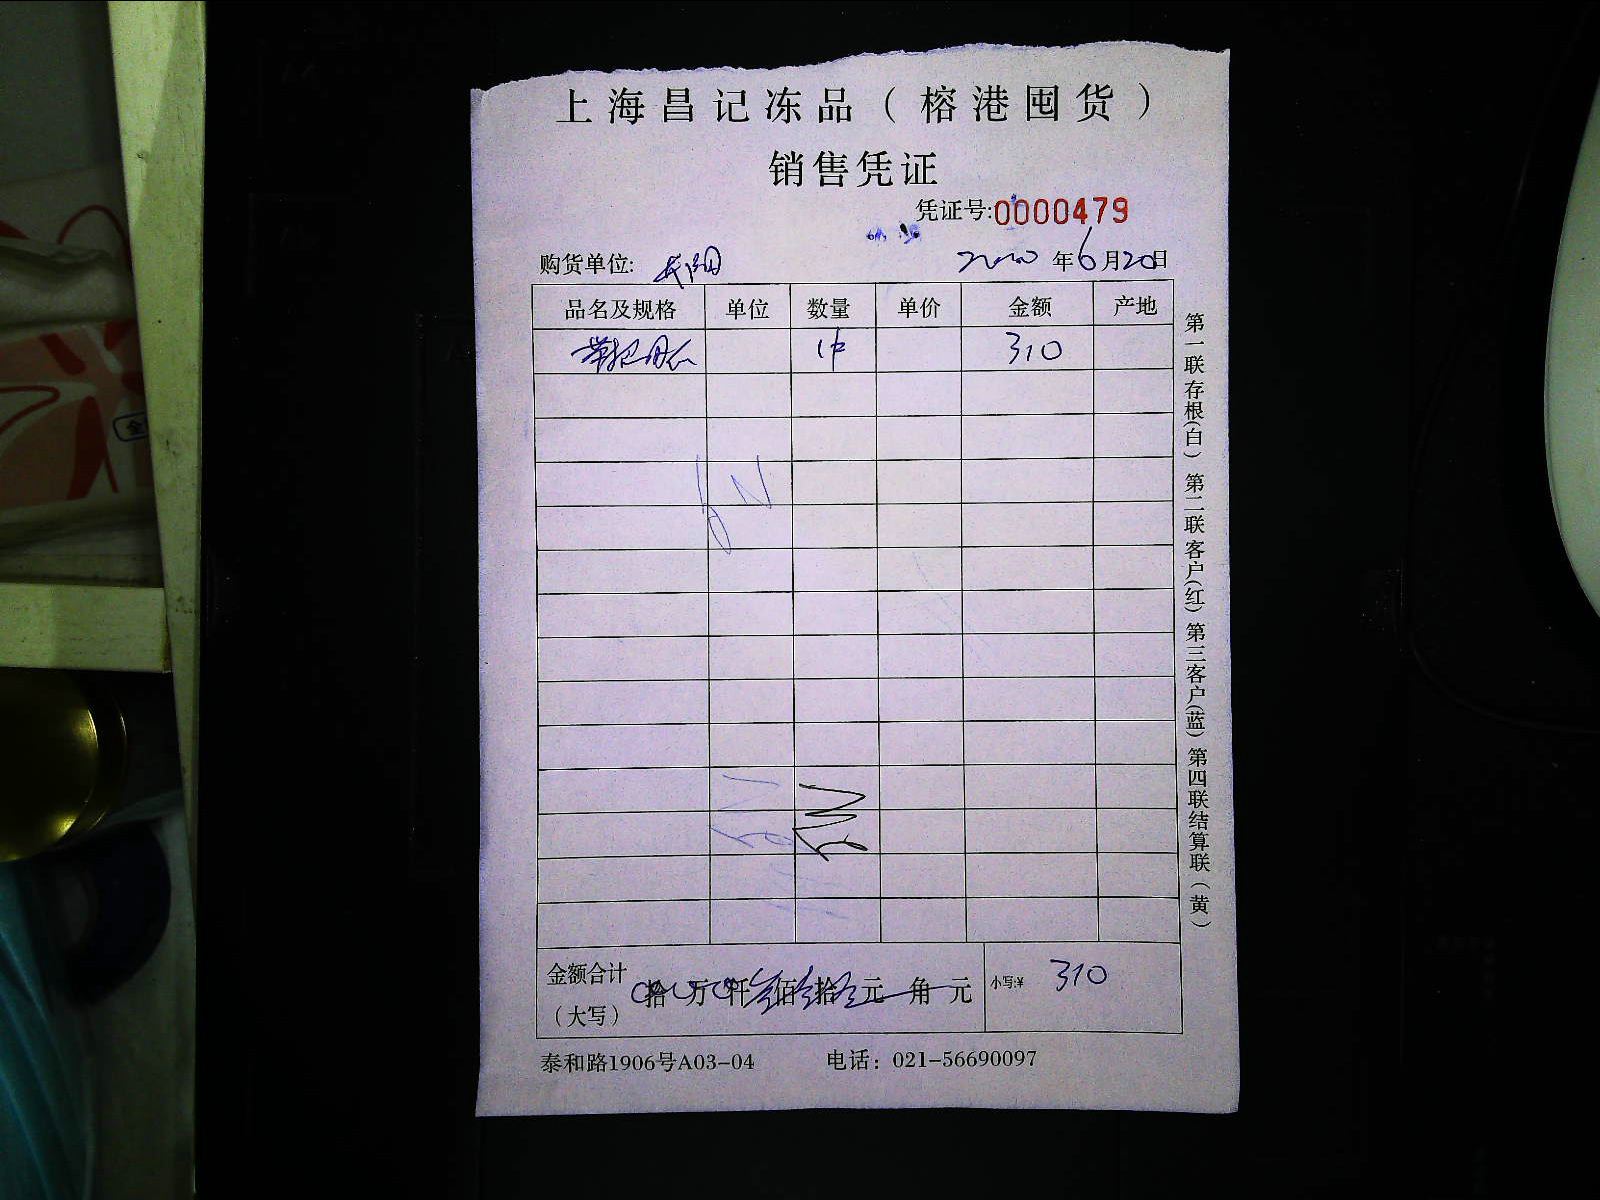 上海昌记冻品（榕港囤货）
销售凭证
凭证号:0000479
购货单位: 年6月20日
品名及规格 单位 数量 单价 金额 产地
1件 310
金额合计
（大写） 拾 万 仟 佰 拾 元 角 元 小写:¥ 310
泰和路1906号A03-04 电话：021-56690097
第一联存根(白) 第二联客户(红) 第三客户(蓝) 第四联结算联（黄）